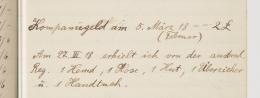 Kompaniegeld am 8. März 18 -- 2 £
(Februar)
Am 22. III 18 erhielt ich von der austral.
Reg. 1 Hemd, 1 Hose, 1 Hut, 1 Überzieher
u. 1 Handtuch.